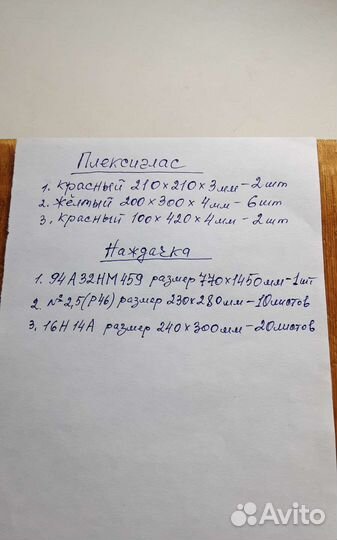 Плексиглас
1. Красный 210×210×3мм – 2 шт
2. Жёлтый 200×300×4мм – 6 шт
3. Красный 100×420×4мм – 2 шт
Наждачка
1. 94А32НМ459 размер 770×1450мм – 1 шт
2. №2,5(Р46) размер 230×280мм – 10листов
3. 16Н14А размер 240×300мм – 20листов
Avito